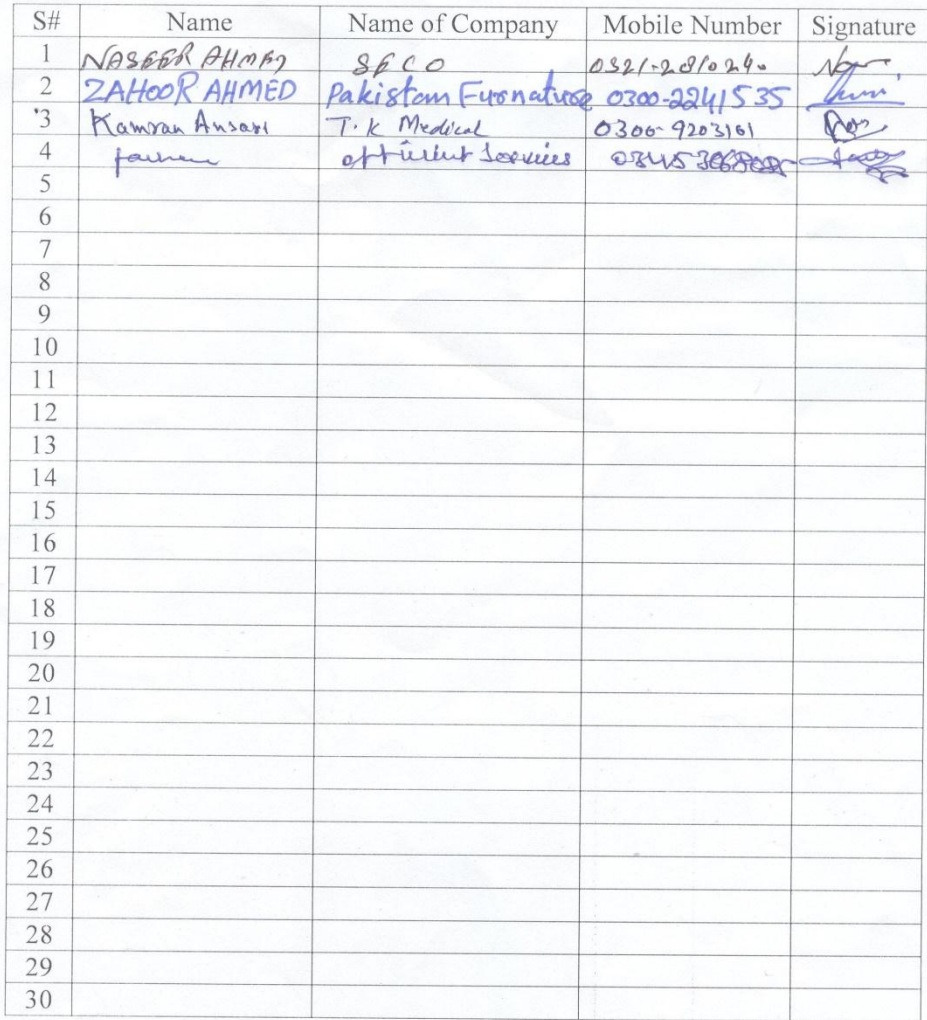 S# Name Name of Company Mobile Number Signature
1 NASEER AHMED SECO 0321-2810240
2 ZAHOOR AHMED Pakistan Furnature 0300-2241535
3 Kamran Ansari T.K Medical 0300-9203161
4 Services
5
6
7
8
9
10
11
12
13
14
15
16
17
18
19
20
21
22
23
24
25
26
27
28
29
30